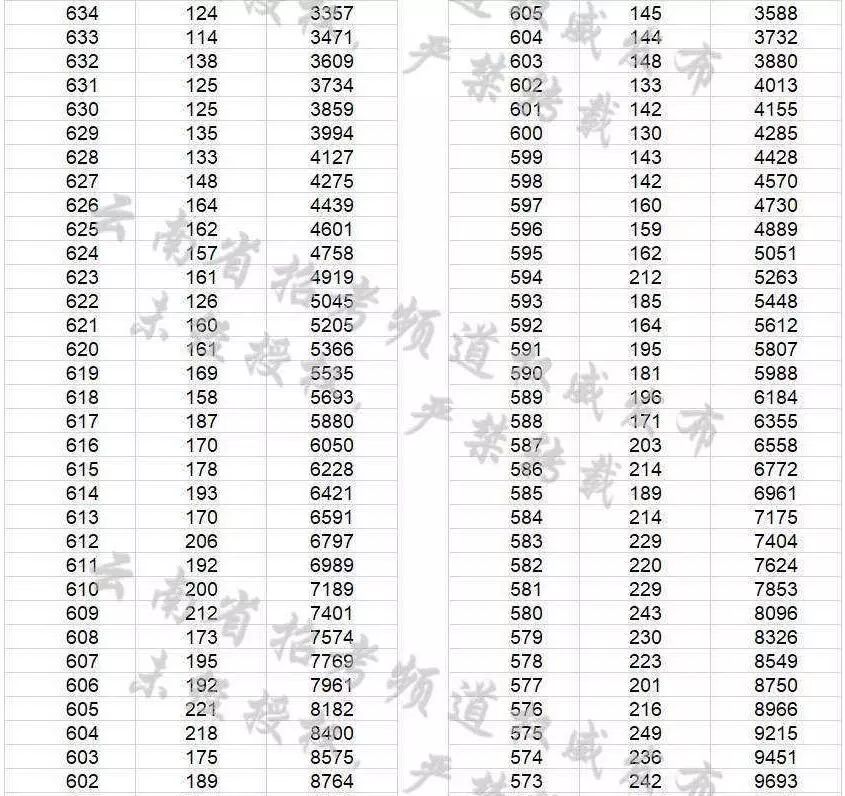 634 124 3357 605 145 3588
633 114 3471 604 144 3732
632 138 3609 603 148 3880
631 125 3734 602 133 4013
630 125 3859 601 142 4155
629 135 3994 600 130 4285
628 133 4127 599 143 4428
627 148 4275 598 142 4570
626 164 4439 597 160 4730
625 162 4601 596 159 4889
624 157 4758 595 162 5051
623 161 4919 594 212 5263
622 126 5045 593 185 5448
621 160 5205 592 164 5612
620 161 5366 591 195 5807
619 169 5535 590 181 5988
618 158 5693 589 196 6184
617 187 5880 588 171 6355
616 170 6050 587 203 6558
615 178 6228 586 214 6772
614 193 6421 585 189 6961
613 170 6591 584 214 7175
612 206 6797 583 229 7404
611 192 6989 582 220 7624
610 200 7189 581 229 7853
609 212 7401 580 243 8096
608 173 7574 579 230 8326
607 195 7769 578 223 8549
606 192 7961 577 201 8750
605 221 8182 576 216 8966
604 218 8400 575 249 9215
603 175 8575 574 236 9451
602 189 8764 573 242 9693
云南省招考频道权威发布
未经授权，严禁转载
云南省招考频道权威发布
未经授权，严禁转载